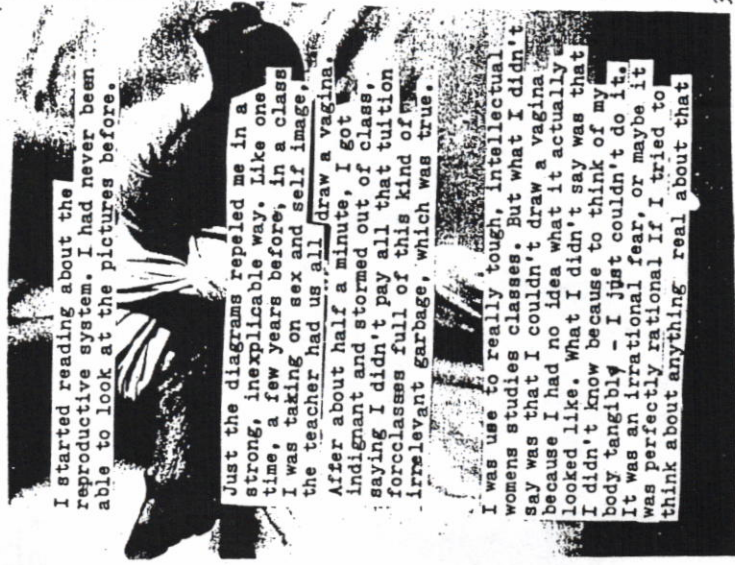 I started reading about the
reproductive system. I had never been
able to look at the pictures before.
Just the diagrams repeled me in a
strong, inexplicable way. Like one
time, a few years before, in a class
I was taking on sex and self image,
the teacher had us all draw a vagina.
After about half a minute, I got
indignant and stormed out of class,
saying I didn't pay all that tuition
forclasses full of this kind of
irrelevant garbage, which was true.
I was use to really tough, intellectual
womens studies classes. But what I didn't
say was that I couldn't draw a vagina
because I had no idea what it actually
looked like. What I didn't say was that
I didn't know because to think of my
body tangibly - I just couldn't do it.
It was an irrational fear, or maybe it
was perfectly rational If I tried to
think about anything real about that